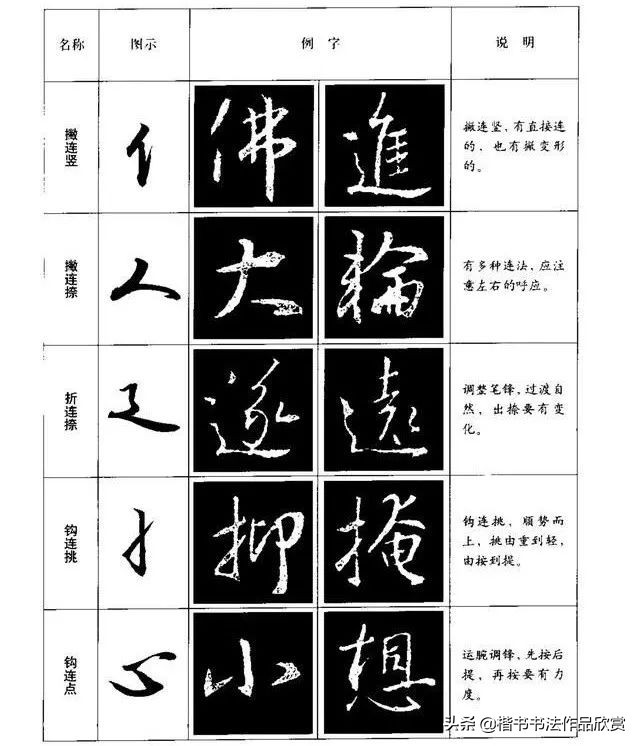 名称 图示 例字 说明
撇连竖 亻 佛 進 撇连竖，有直接连
的，也有撇变形
的。
撇连捺 人 大 輪 有多种连法，应注
意左右的呼应。
折连捺 辶 遂 遠 调整笔锋，过渡自
然，出捺要有变
化。
钩连挑 扌 抑 掩 钩连挑，顺势而
上，挑由重到轻，
由按到提。
钩连点 心 小 想 运腕调锋，先按后
提，再按要有力
度。
头条 @楷书书法作品欣赏